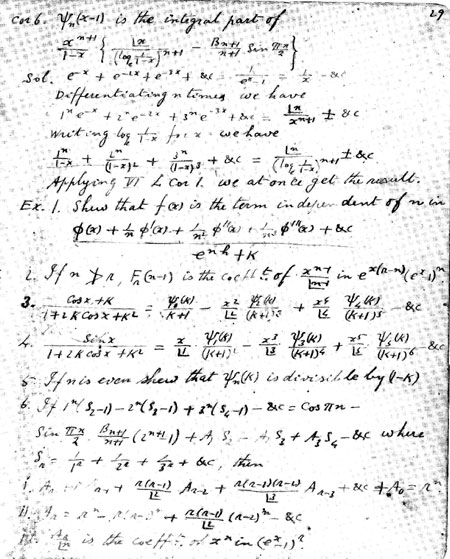 29
Cor 6. ψ_n(x-1) is the integral part of
x^{n+1}/(1-x) { |n/(log 1/(1-x))^{n+1} - B_{n+1}/(n+1) Sin πn/2 }
Sol. e^{-x} + e^{-2x} + e^{-3x} + &c = 1/(e^x-1) = 1/x - &c
Differentiating n times we have
1^n e^{-x} + 2^n e^{-2x} + 3^n e^{-3x} + &c = |n/x^{n+1} ± &c
Writing log 1/(1-x) for x we have
1^n/(1-x) + 2^n/(1-x)^2 + 3^n/(1-x)^3 + &c = |n/(log 1/(1-x))^{n+1} ± &c
Applying VI Cor 1. we at once get the result.
Ex. 1. Shew that f(x) is the term independent of n in
φ(x) + 1/n φ'(x) + 1/n² φ''(x) + 1/n³ φ'''(x) + &c
e^{nh} + K
2. If n ≯ r, F_r(n-1) is the coefft. of x^{n-1}/|n-1 in e^{x(r-n)}(e^x-1)^n
3. (Cos x + K)/(1+2K Cos x + K²) = ψ_0(K)/(K+1) - x²/|2 ψ_2(K)/(K+1)^3 + x⁴/|4 ψ_4(K)/(K+1)^5 &c
4. Sin x/(1+2K Cos x + K²) = x/|1 ψ_1(K)/(K+1)² - x³/|3 ψ_3(K)/(K+1)⁴ + x⁵/|5 ψ_5(K)/(K+1)⁶ - &c
5. If n is even shew that ψ_n(K) is divisible by (1-K)
6. If 1^n(S_2-1) - 2^n(S_3-1) + 3^n(S_4-1) - &c = Cos πn -
Sin πn/2 B_{n+1}/(n+1) (2^{n+1}-1) + A_1 S_2 - A_2 S_3 + A_3 S_4 - &c where
S_n = 1/1^n + 1/2^n + 1/3^n + &c, then
i. + r(r-1)/|2 A_{r-2} + r(r-1)(r-2)/|3 A_{r-3} + &c + A_0 = r^n
ii. A_r = r^n - + r(r-1)/|2 (r-2)^n - &c
is the coefft. of x^n in (e^x-1)^r